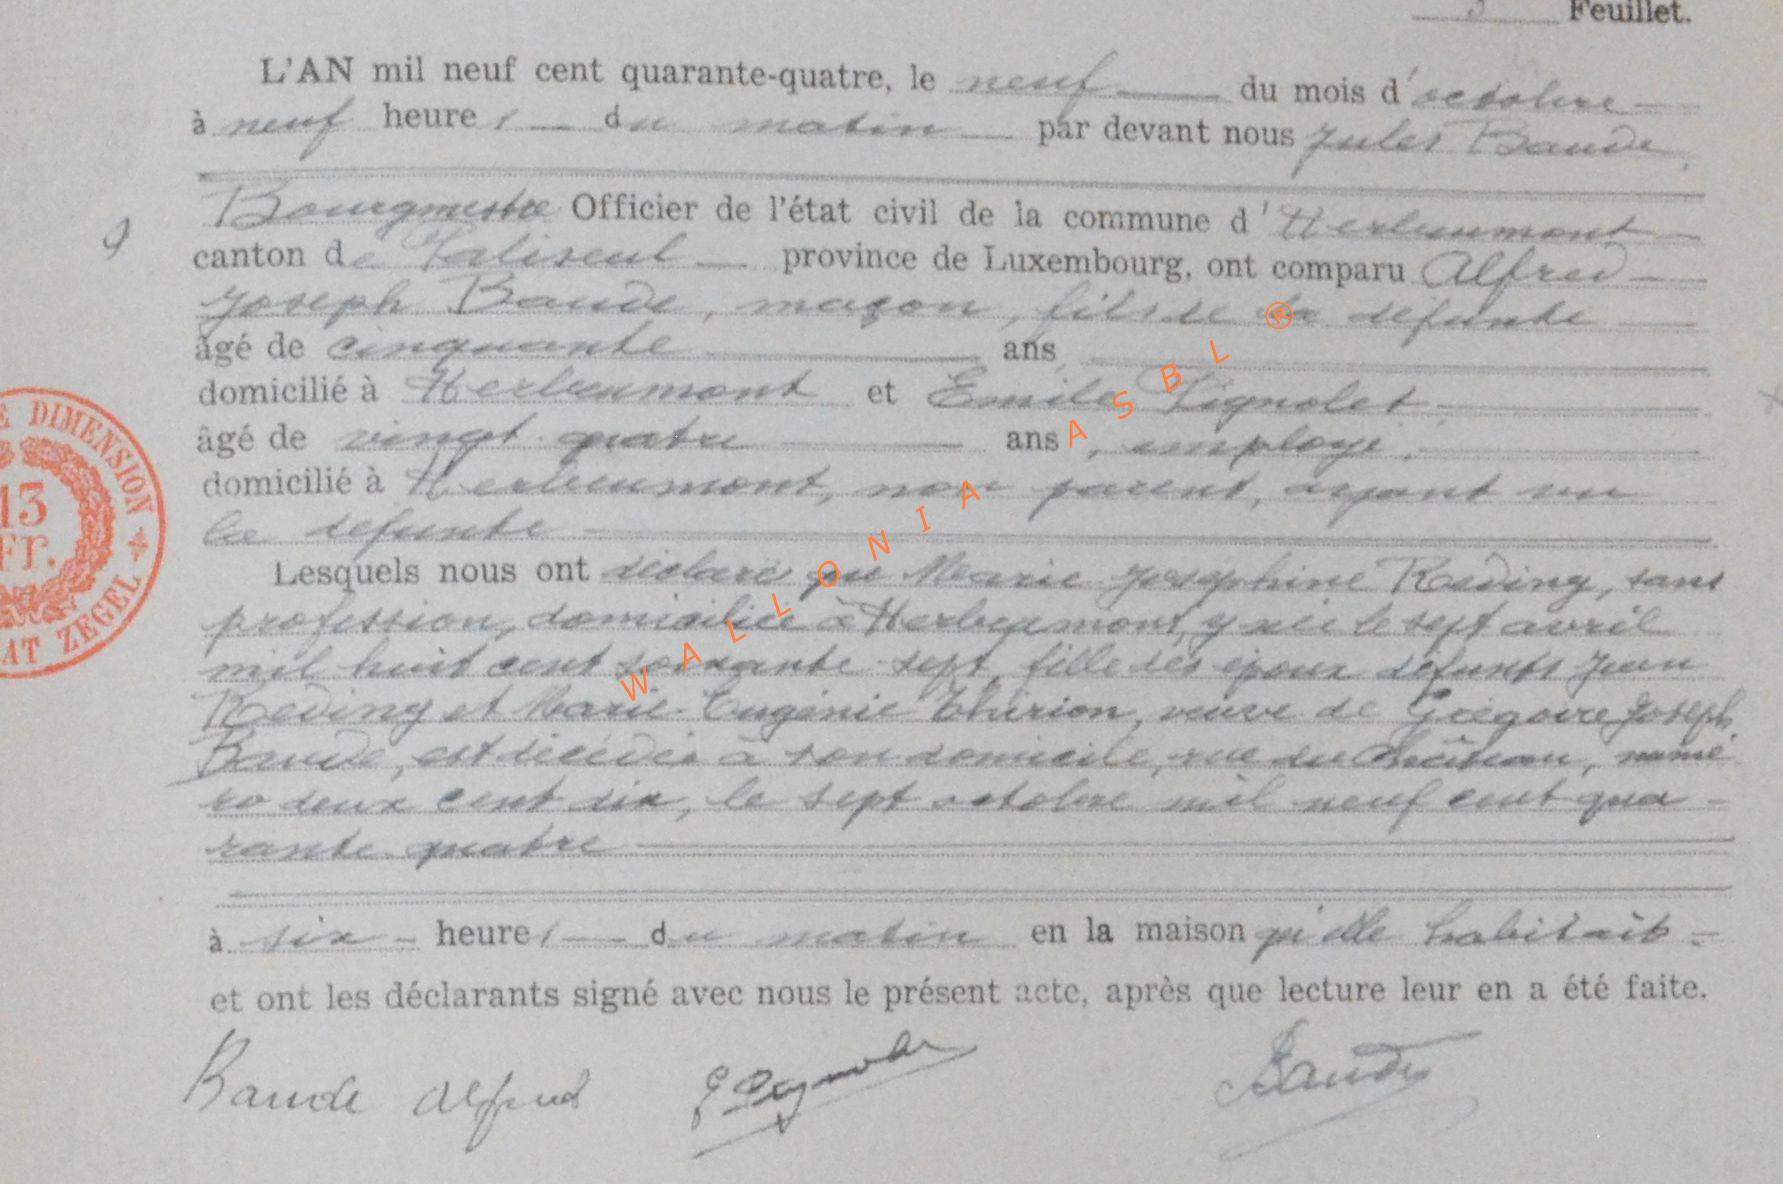 5 Feuillet.
L'AN mil neuf cent quarante-quatre, le neuf du mois d'octobre
à neuf heures du matin par devant nous Jules Baude,
Bourgmestre Officier de l'état civil de la commune d'Herbeumont
9
canton de Paliseul province de Luxembourg, ont comparu Alfred
Joseph Baude, maçon, fils de la défunte
âgé de cinquante ans,
domicilié à Herbeumont et Emile Pignolet,
âgé de vingt-quatre ans, employé,
domicilié à Herbeumont, non parent, ayant vu
la défunte
Lesquels nous ont déclaré que Marie Joséphine Reding, sans
profession, domiciliée à Herbeumont, y née le sept avril
mil huit cent soixante-sept, fille des époux défunts Jean
Reding et Marie-Eugénie Thirion, veuve de Grégoire Joseph
Baude, est décédée à son domicile, rue du Château, numé
ro deux cent dix, le sept octobre mil neuf cent qua-
rante-quatre
à six heures du matin en la maison qu'elle habitait.
et ont les déclarants signé avec nous le présent acte, après que lecture leur en a été faite.
Baude Alfred E Pignolet Baude
E DIMENSION
13
Fr.
AT ZEGEL
WALLONIA ASBL ®